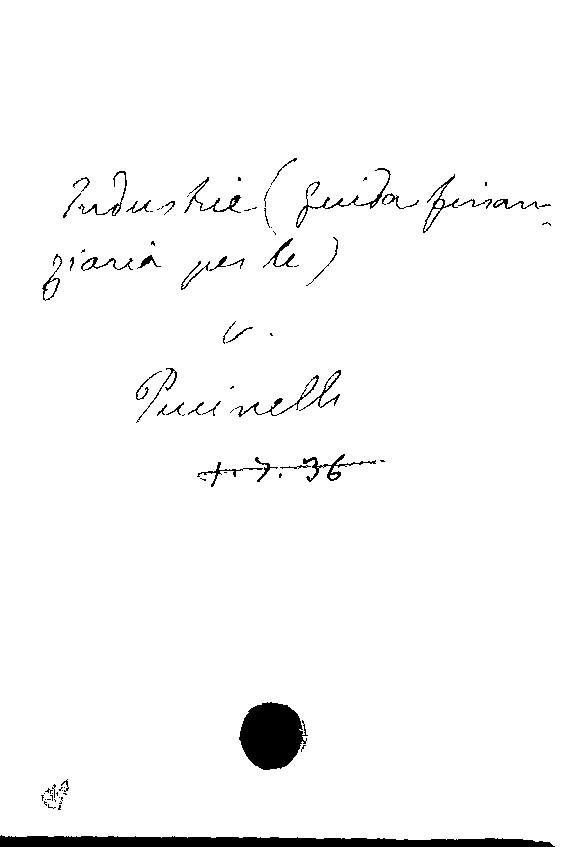 Industrie (guida finan-
ziaria per le)
v.
Pucinelli
+. 7. 36